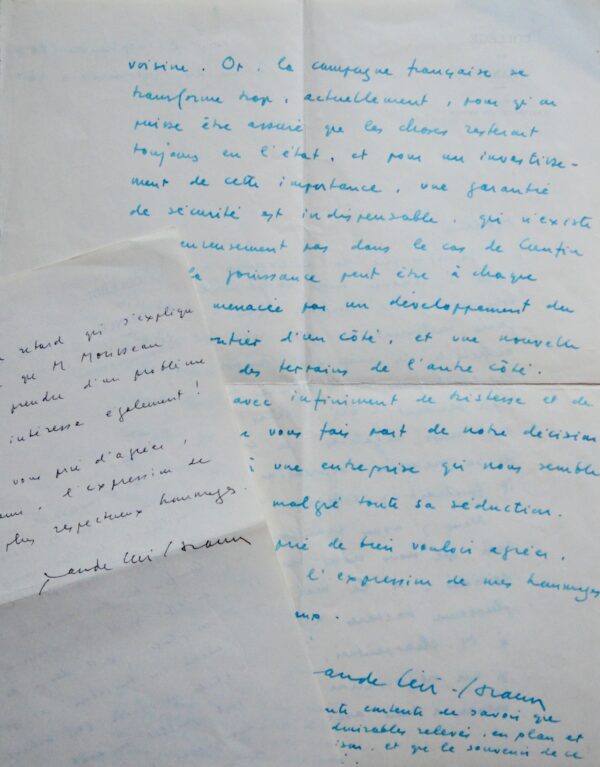 voisine. Or, la campagne française se
transforme trop, actuellement, pour qu'on
puisse être assuré que les choses resteront
toujours en l'état, et pour un investisse-
ment de cette importance, une garantie
de sécurité est indispensable, qui n'existe
pas dans le cas de
la jouissance peut être à chaque
menacée par un développement du
d'un côté, et une nouvelle
des terrains de l'autre côté.
avec infiniment de tristesse et de
vous fais part de notre décision
une entreprise qui nous semble
malgré toute sa séduction.
prie de bien vouloir agréer,
l'expression de mes hommages
aux.
aude Lévi-Strauss
contente de savoir que
relevés, en plan et
et que le souvenir de ce
retard qui s'explique
que M
prendre d'un problème
intéresse également !
vous prie d'agréer,
l'expression de
plus respectueux hommages.
aude Lévi-Strauss